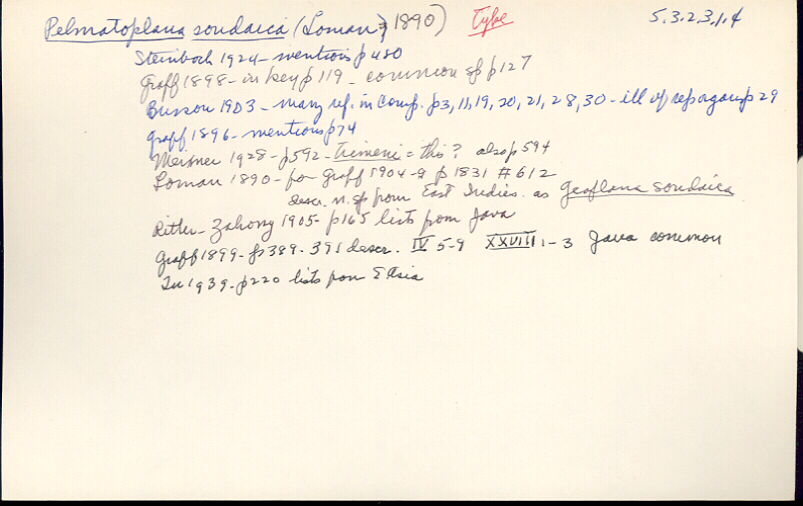 Pelmatoplana sondaica (Loman, 1890) Type 5.3.2.3.1.4
Steinboch 1924 - mentions p 480
Graff 1898 - in key p 119 - common sp p 127
Busson 1903 - many ref. in comp. p3, 11, 19, 20, 21, 28, 30 - ill of rep organs p 29
Graff 1896 - mentions p74
Meixner 1928 - p592 - trimeni = this? also p 594
Loman 1890 - for Graff 1904-9 p 1831 # 612
descr. n. sp from East Indies. as Geoplana sondaica
Ritter-Zahony 1905 - p165 lists from Java
Graff 1899 - p 389 - 391 descr. IV 5-9 XXVIII 1-3 Java common
1939 - p220 lists from E Asia